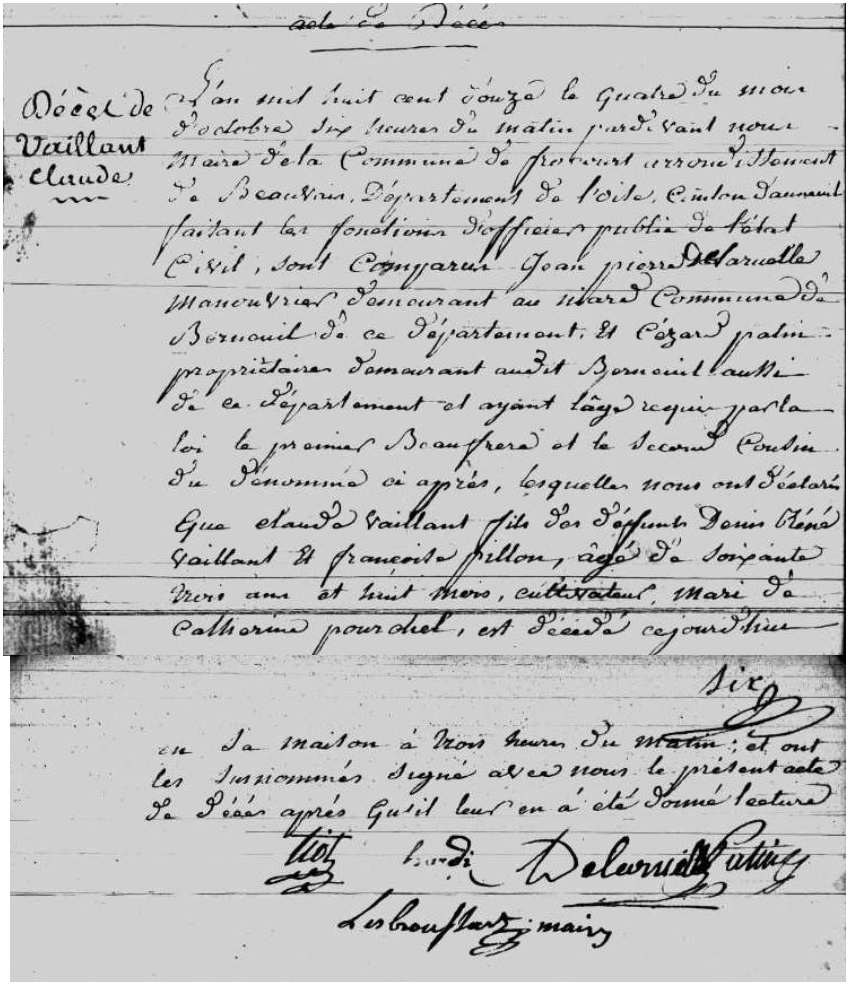 acte de Décès
Décès de
Vaillant
Claude
L'an mil huit cent Douze le quatre du mois
d'octobre six heures du matin pardevant nous
Maire de la Commune de frocourt arrondissement
de Beauvais, Département de l'oise, Canton d'auneuil
faisant les fonctions d'officier public de l'état
Civil, sont Comparus Jean pierre Delaruelle
Manouvrier demeurant au Commune de
Berneuil de ce département, Et Cézard patin
propriétaires demeurant audit Berneuil aussi
de ce département et ayant l'âge requis par la
loi le premier Beaufrere et le second Cousin
du dénommé ci après, lesquelles nous ont déclarés
Que claude Vaillant fils des défunts Denis Réné
Vaillant Et françoise pillon, âgé de soixante
trois ans et huit mois, cultivateur, mari de
Catherine pourchel, est décédé cejourd'hui
Six
en sa maison à trois heures du matin; et ont
les surnommés signé avec nous le présent acte
de décès après qu'il leur en à été donné lecture
tiot hardi Delaruelle Patin
maire